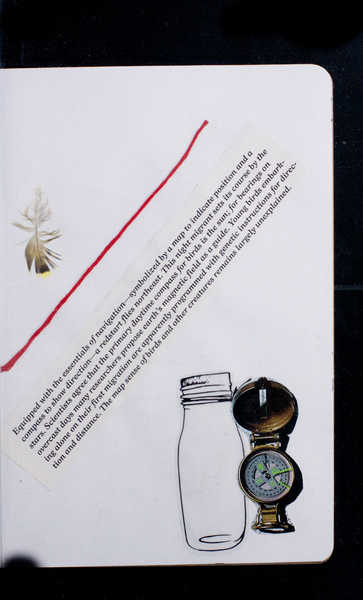 Equipped with the essentials of navigation—symbolized by a map to indicate position and a
compass to show direction—a redstart flies northeast. This night migrant sets its course by the
stars. Scientists agree that the primary daytime compass for birds is the sun; for bearings on
overcast days many researchers propose earth's magnetic field as a guide. Young birds embark-
ing alone on their first migration are apparently programmed with genetic instructions for direc-
tion and distance. The map sense of birds and other creatures remains largely unexplained.